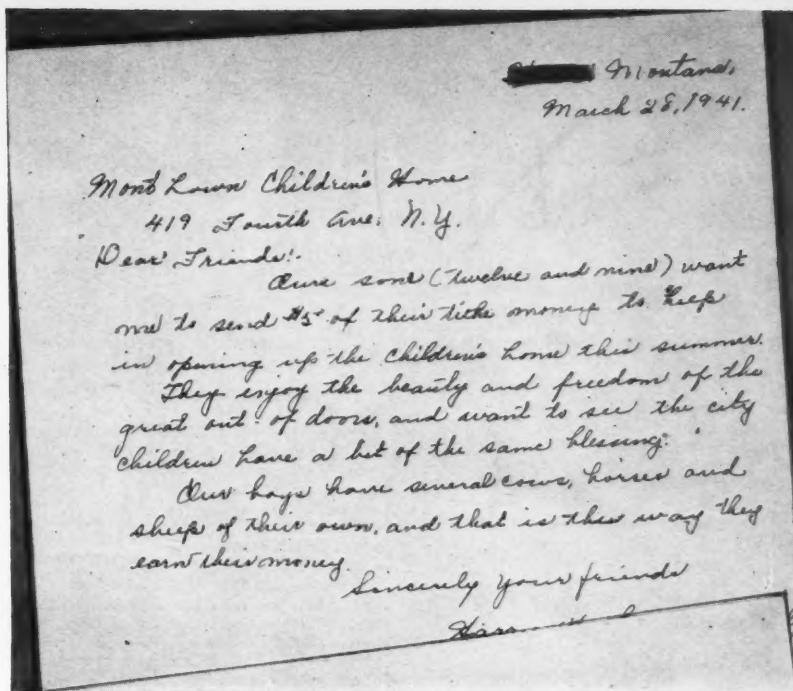 Montana,
March 28, 1941.
Mont Lawn Children's Home
419 Fourth Ave. N.Y.
Dear Friends:
Our sons (twelve and nine) want
me to send $5 of their tithe money to help
in opening up the children's home this summer.
They enjoy the beauty and freedom of the
great out-of doors, and want to see the city
children have a bit of the same blessing.
Our boys have several cows, horses and
sheep of their own, and that is the way they
earn their money.
Sincerely your friends